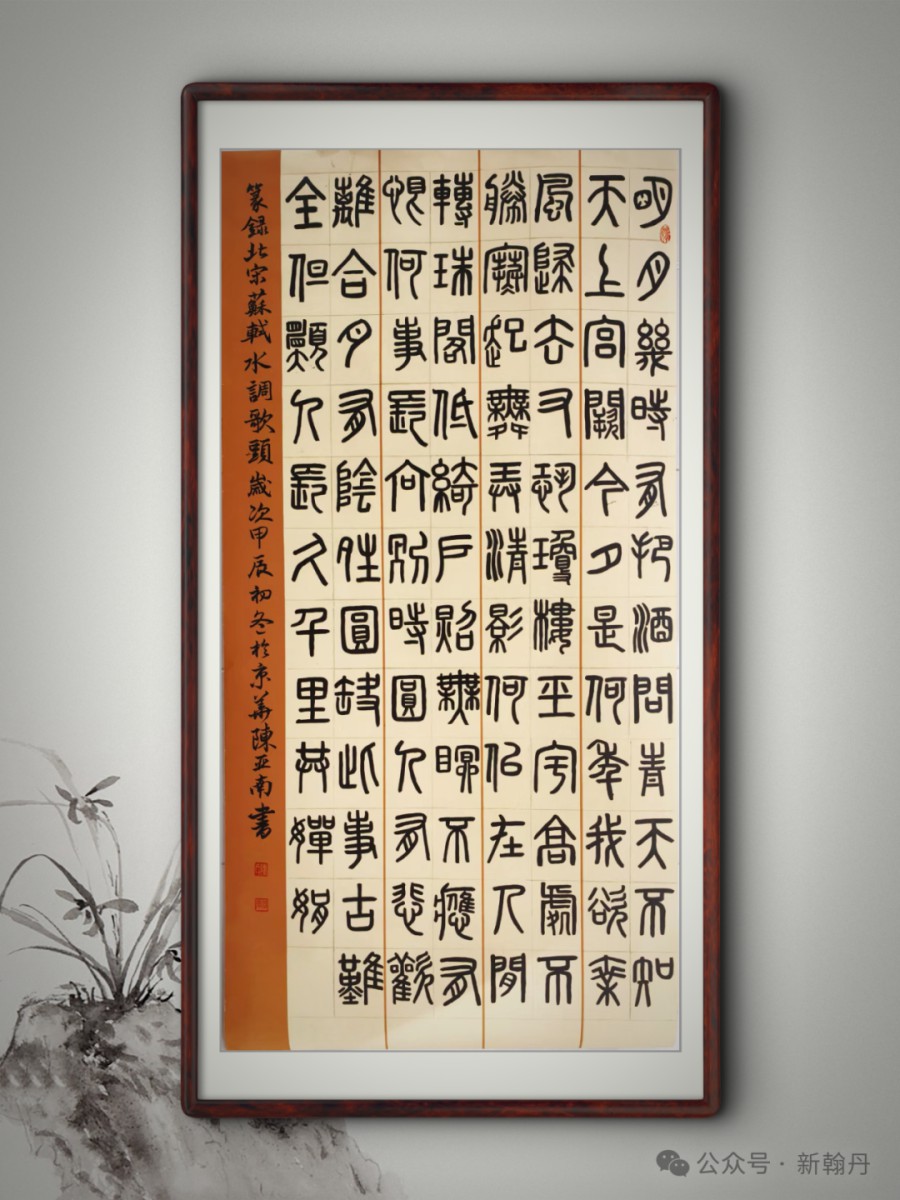 明月幾時有把酒問青天不知
天上宮闕今夕是何年我欲乘
風歸去又恐瓊樓玉宇高處不
勝寒起舞弄清影何似在人間
轉珠閣低綺戶照無眠不應有
恨何事長向別時圓人有悲歡
離合月有陰晴圓缺此事古難
全但願人長久千里共嬋娟
篆錄北宋蘇軾水調歌頭歲次甲辰初冬於京華陳亞南書
公众号 · 新翰丹